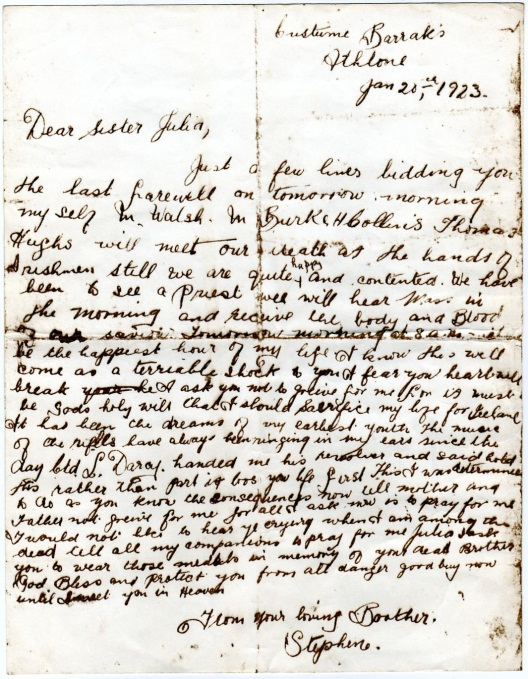 Custume Barrak's
Athlone
Jan 20th, 1923.
Dear sister Julia,
Just a few lines bidding you
the last farewell on tomorrow morning
my self M. Walsh. M Burke H Collins Thomas
Hughs will meet our death at the hands of
Irishmen still we are quite happy and contented. We have
been to see a Priest wee will hear Mass in
the morning and receive the body and Blood
of our saviour Tomorrow morning at 8 a.m.
be the happiest hour of my life I know this will
come as a terriable shock to you I fear you heart will
break I ask you not to greive for me for it must
be Gods holy will that I should sacrifice my life for Ireland
It has been the dreams of my earlest youth The music
of the rifles have always been ringing in my ears since the
day Cld S. Daray. handed me his revolver and said hold
this rather then part it loos you life first This I was determined
to do as you know the consequences now tell mother and
Father not greive for me for all I ask now is to pray for me
I would not like to hear ye crying when I am among the
dead tell all my companions to pray for me Julia I ask
you to wear those medels in memory of you dead Brother
God Bless and protect you from all danger good buy now
until I meet you in Heaven
From your loving Boother.
Stephene.